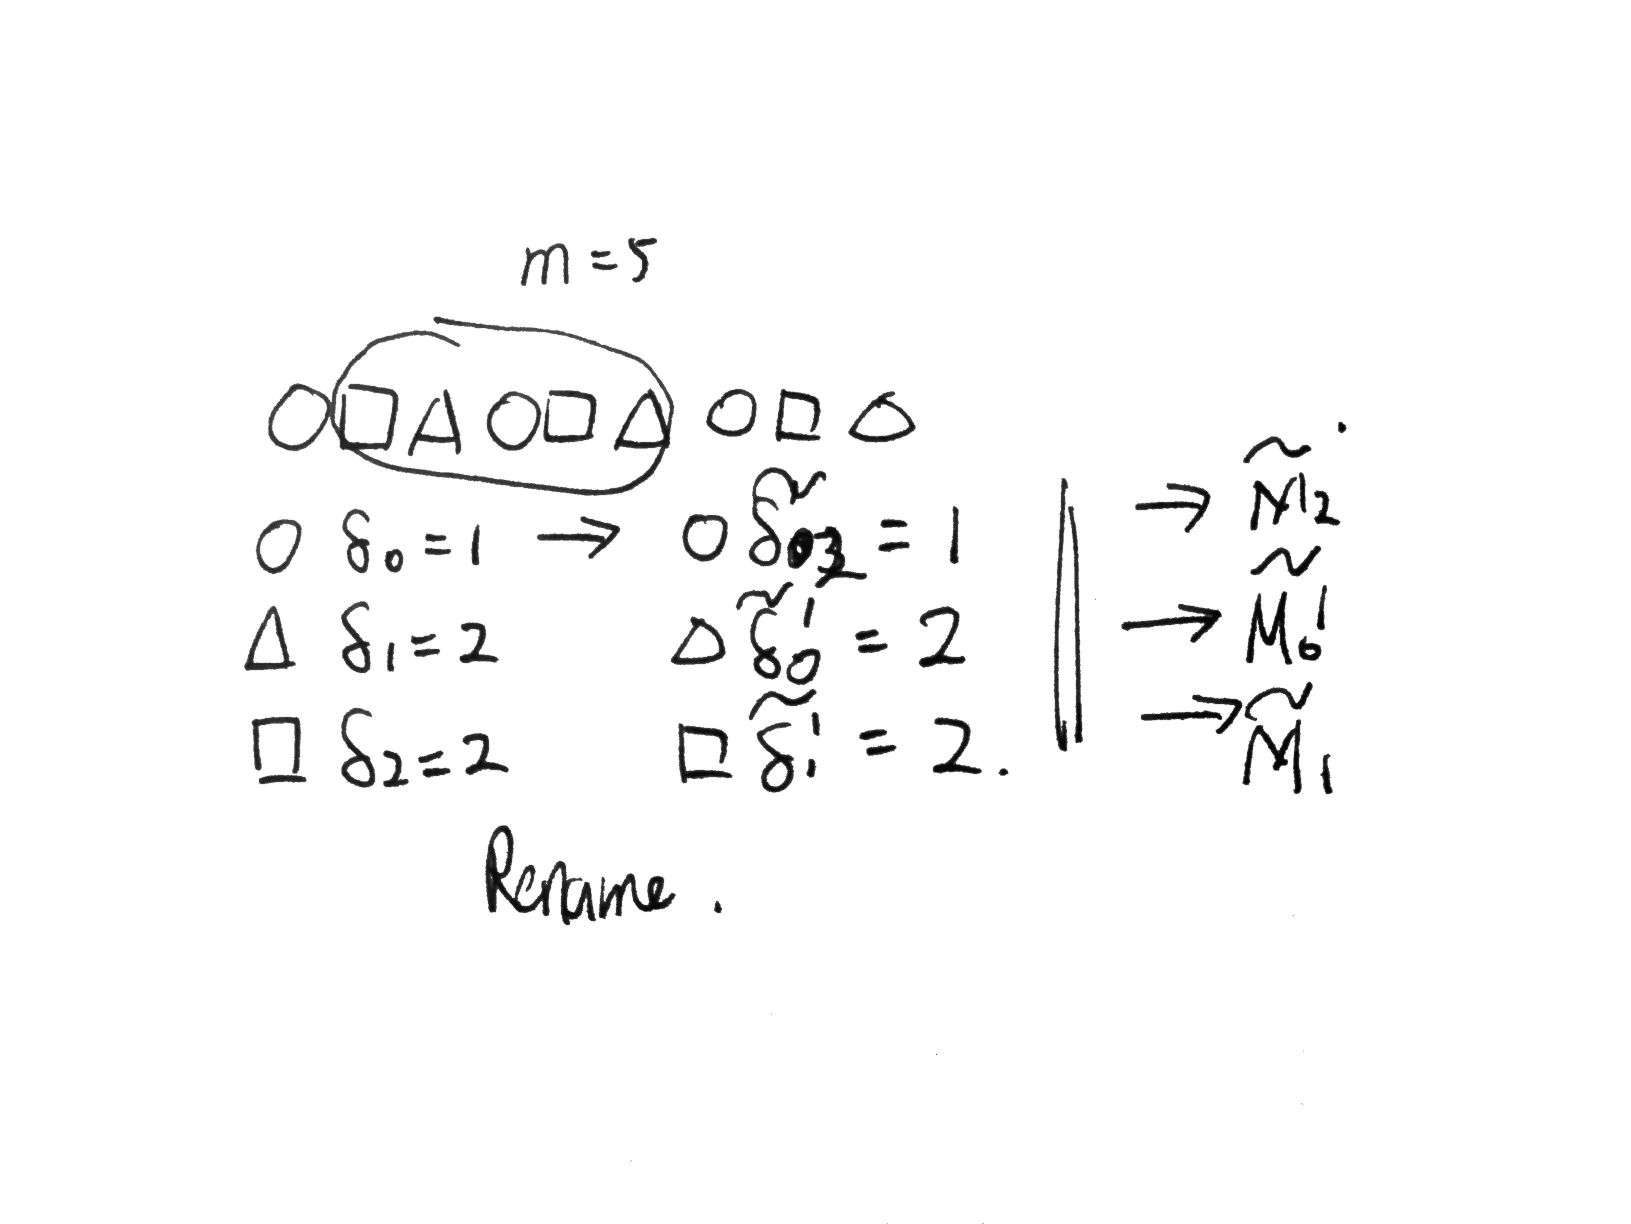 m = 5
○ □ △ ○ □ △ ○ □ △
○ δ₀ = 1 → ○ δ̃₂ = 1 → M̃'₂
△ δ₁ = 2 △ δ̃'₀ = 2 → M̃'₀
□ δ₂ = 2 □ δ̃'₁ = 2. → M̃₁
Rename.